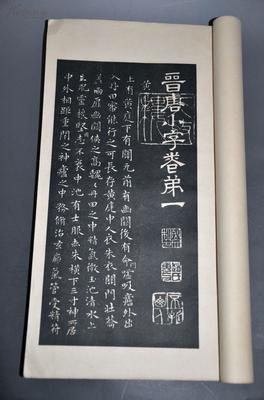 晉唐小字卷弟一
黃
上有黃庭下有關元前有幽闕後有命門噓吸廬外出
入丹田審能行之可長存黃庭中人衣朱衣關門壯籥
蓋兩扉幽闕俠之高魏魏丹田之中精氣微玉池清水上
生肥靈根堅志不衰中池有士服赤朱橫下三寸神所居
中外相距重閉之神廬之中務脩治玄廱氣管受精符